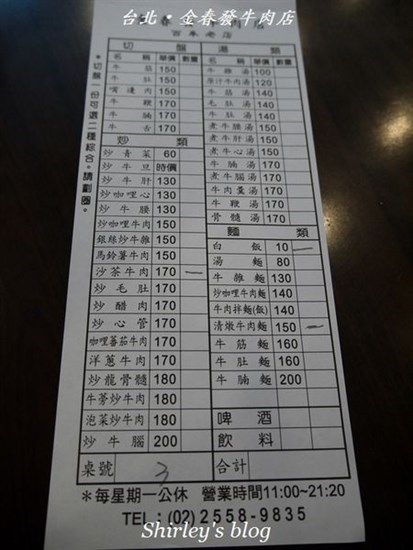 台北。金春發牛肉店
百年老店
*切盤一份可選二種綜合。請劃圈。
切 盤
名稱 單價 數量
牛筋 150
牛肚 150
嘴邊肉 150
牛鞭 170
牛腩 170
牛舌 170
炒 類
炒青菜 60
炒牛旦 時價
炒牛肝 130
炒咖哩心 130
炒牛腰 130
炒咖哩牛肉 150
銀絲炒牛雜 150
馬鈴薯牛肉 150
沙茶牛肉 170 一
炒毛肚 170
炒醋肉 170
炒心管 170
咖哩蕃茄牛肉 170
洋蔥牛肉 170
炒龍骨髓 180
牛蒡炒牛肉 180
泡菜炒牛肉 180
炒牛腦 200
湯 類
名稱 單價 數量
牛雜湯 100
原汁牛肉湯 120
牛筋湯 150
牛肚湯 150
煮牛腰湯 150
煮牛肝湯 150
煮牛心湯 150
牛腩湯 170
煮牛腦湯 170
牛肉羹湯 170
牛鞭湯 170
骨髓湯 170
麵 類
白飯 10 一
湯麵 80
牛雜麵 130
炒咖哩牛肉麵 140
牛肉拌麵(飯) 140
清燉牛肉麵 150 一
牛筋麵 160
牛肚麵 160
牛腩麵 200
啤酒
飲料
桌號 3 合計
*每星期一公休 營業時間11:00~21:20
TEL：(02)2558-9835
Shirley's blog